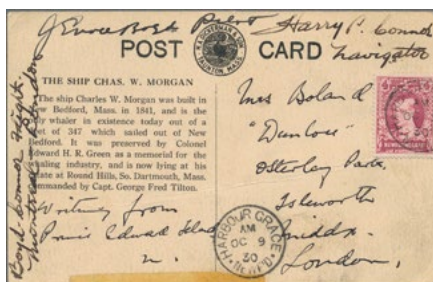 J Errol Boyd Pilot
Harry P. Connor
Navigator
POST CARD
H. A. DICKERMAN & SON
TAUNTON, MASS.
THE SHIP CHAS. W. MORGAN
The ship Charles W. Morgan was built in
New Bedford, Mass. in 1841, and is the
only whaler in existence today out of a
fleet of 347 which sailed out of New
Bedford. It was preserved by Colonel
Edward H. R. Green as a memorial for the
whaling industry, and is now lying at his
estate at Round Hills, So. Dartmouth, Mass.
Commanded by Capt. George Fred Tilton.
Writing from
Prince Edward Island
Boyd Connor Flight
Montreal London
Mrs Boland
Osterley Park
Isleworth
Middx
London,
HARBOUR GRACE
AM
OC 9
30
NEWF'D